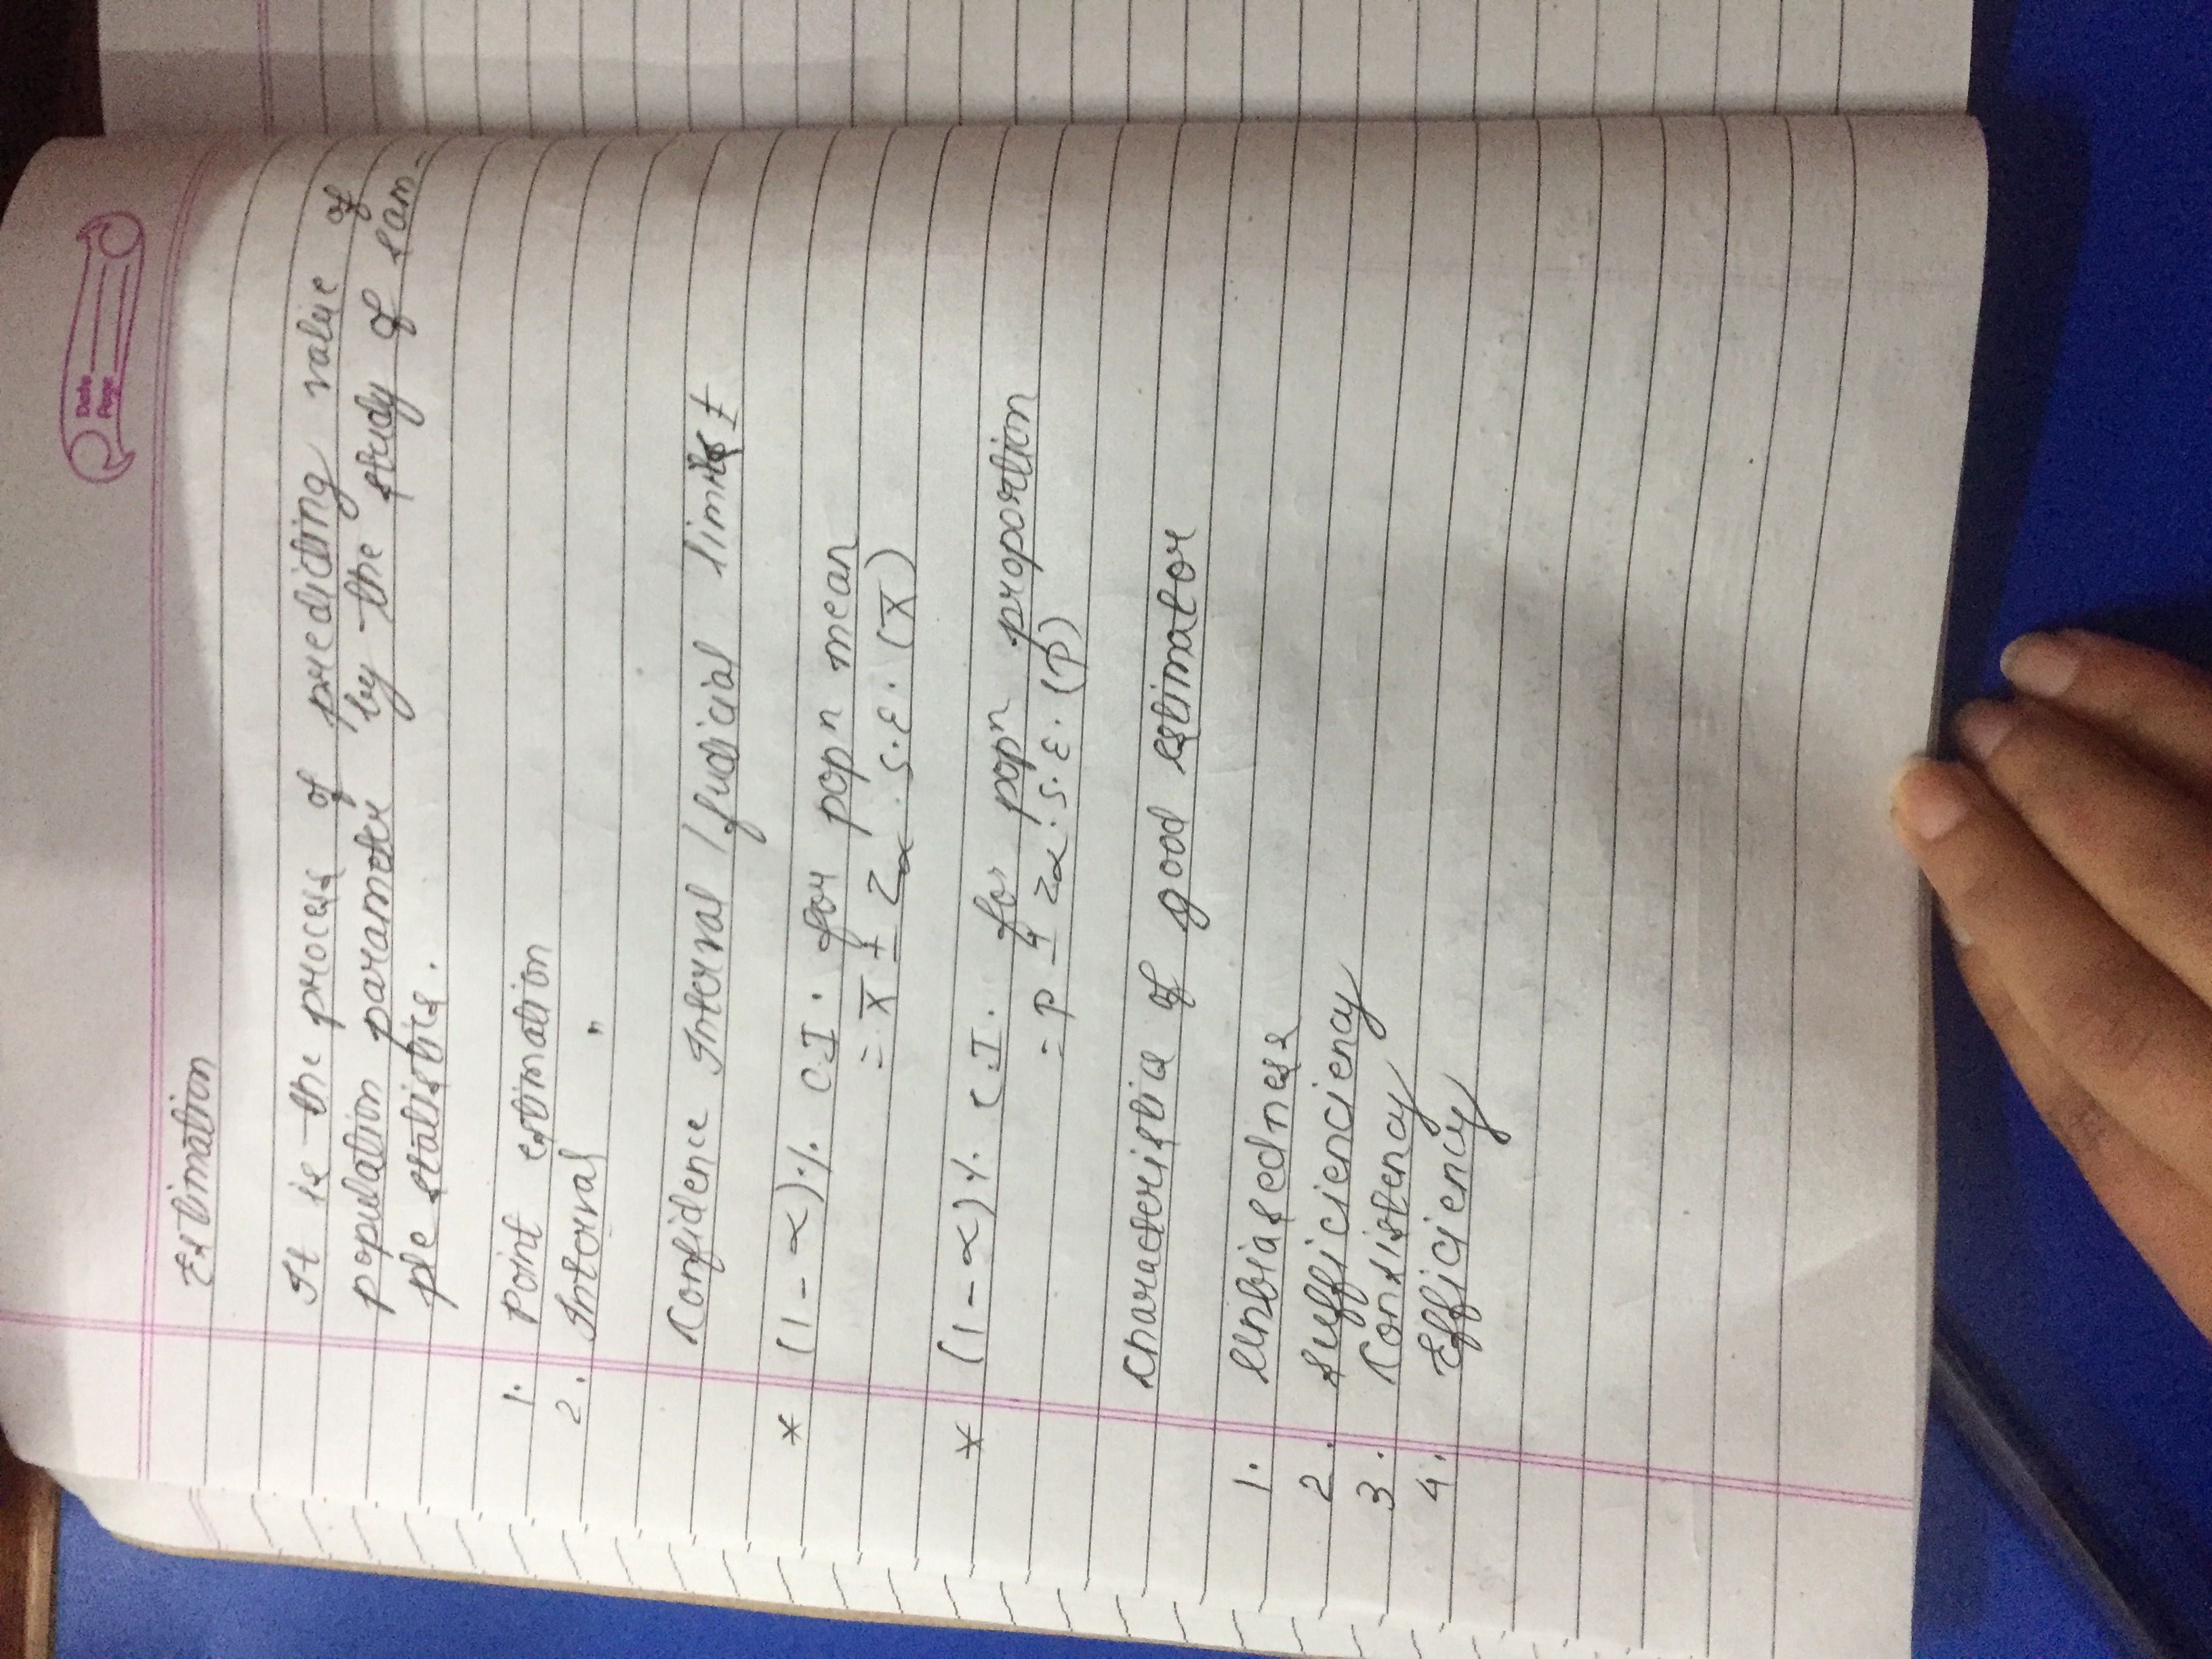 Date
Page
Estimation
It is the process of predicting value of
population parameter by the study of sam-
ple statistics.
1. Point estimation
2. Interval "
Confidence Interval / fudicial limits
* (1 - α) % C.I. for popⁿ mean
= X̅ ± Zα . S.E. (X̅)
* (1 - α) % C.I. for popⁿ proportion
= P ± Zα . S.E. (P)
Characteristics of good estimator
1. Unbiasedness
2. Sufficienciency
3. Consistency
4. Efficiency